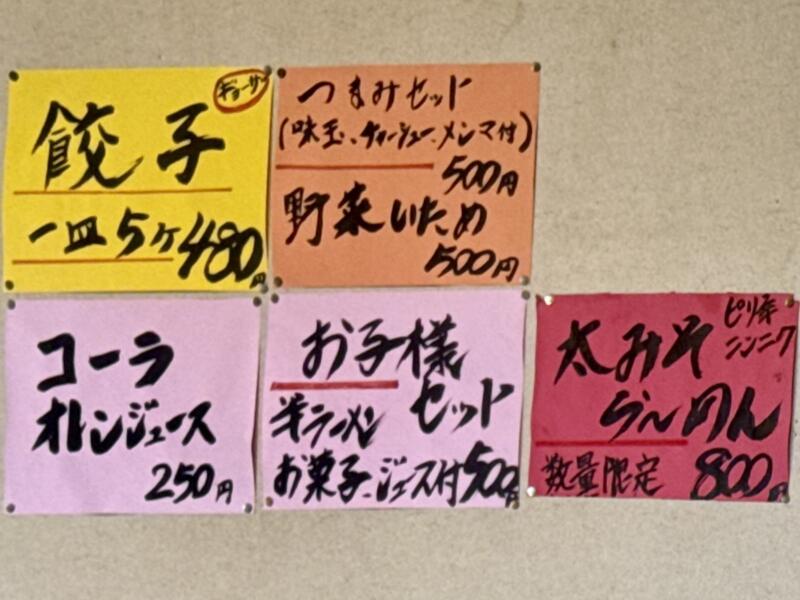 ギョーザ
餃子
一皿5ケ480円
つまみセット
(味玉、チャーシュー、メンマ付)
500円
野菜いため
500円
コーラ
オレンジュース
250円
お子様
セット
半ラーメン
お菓子、ジュース付500円
ピリ辛
ニンニク
太みそ
らーめん
数量限定 800円